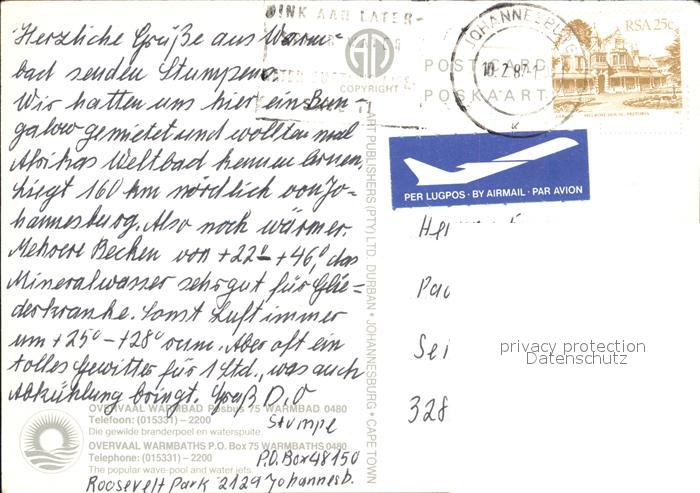 Herzliche Grüße aus Warm-
bad senden Stumpens
Wir hatten uns hier ein Bun-
galow gemietet und wollten mal
Afrikas Weltbad kennen lernen,
liegt 160 km nördlich von Jo-
hannesburg. Also noch wärmer.
Mehrere Becken von +22° - +46°, das
Mineralwasser sehr gut für Glie-
derkranke. Sonst Luft immer
um +25° - +28° rum. Aber oft ein
tolles Gewitter für 1 Std., was auch
Abkühlung bringt. Gruß D. O
Stumpe
P.O. Box 48150
Roosevelt Park 2129 Johannesb.
OVERVAAL WARMBAD Posbus 75 WARMBAD 0480
Telefoon: (015331) – 2200
Die gewilde branderpoel en waterspuite.
OVERVAAL WARMBATHS P.O. Box 75 WARMBATHS 0480
Telephone: (015331) – 2200
The popular wave-pool and water jets.
DINK AAN LATER-
COPYRIGHT
ART PUBLISHERS (PTY) LTD. DURBAN • JOHANNESBURG • CAPE TOWN
POSTCARD
POSKAART
JOHANNESBURG
RSA 25c
MELROSE HOUSE, PRETORIA
PER LUGPOS · BY AIRMAIL · PAR AVION
Pac
Sei
328
privacy protection
Datenschutz